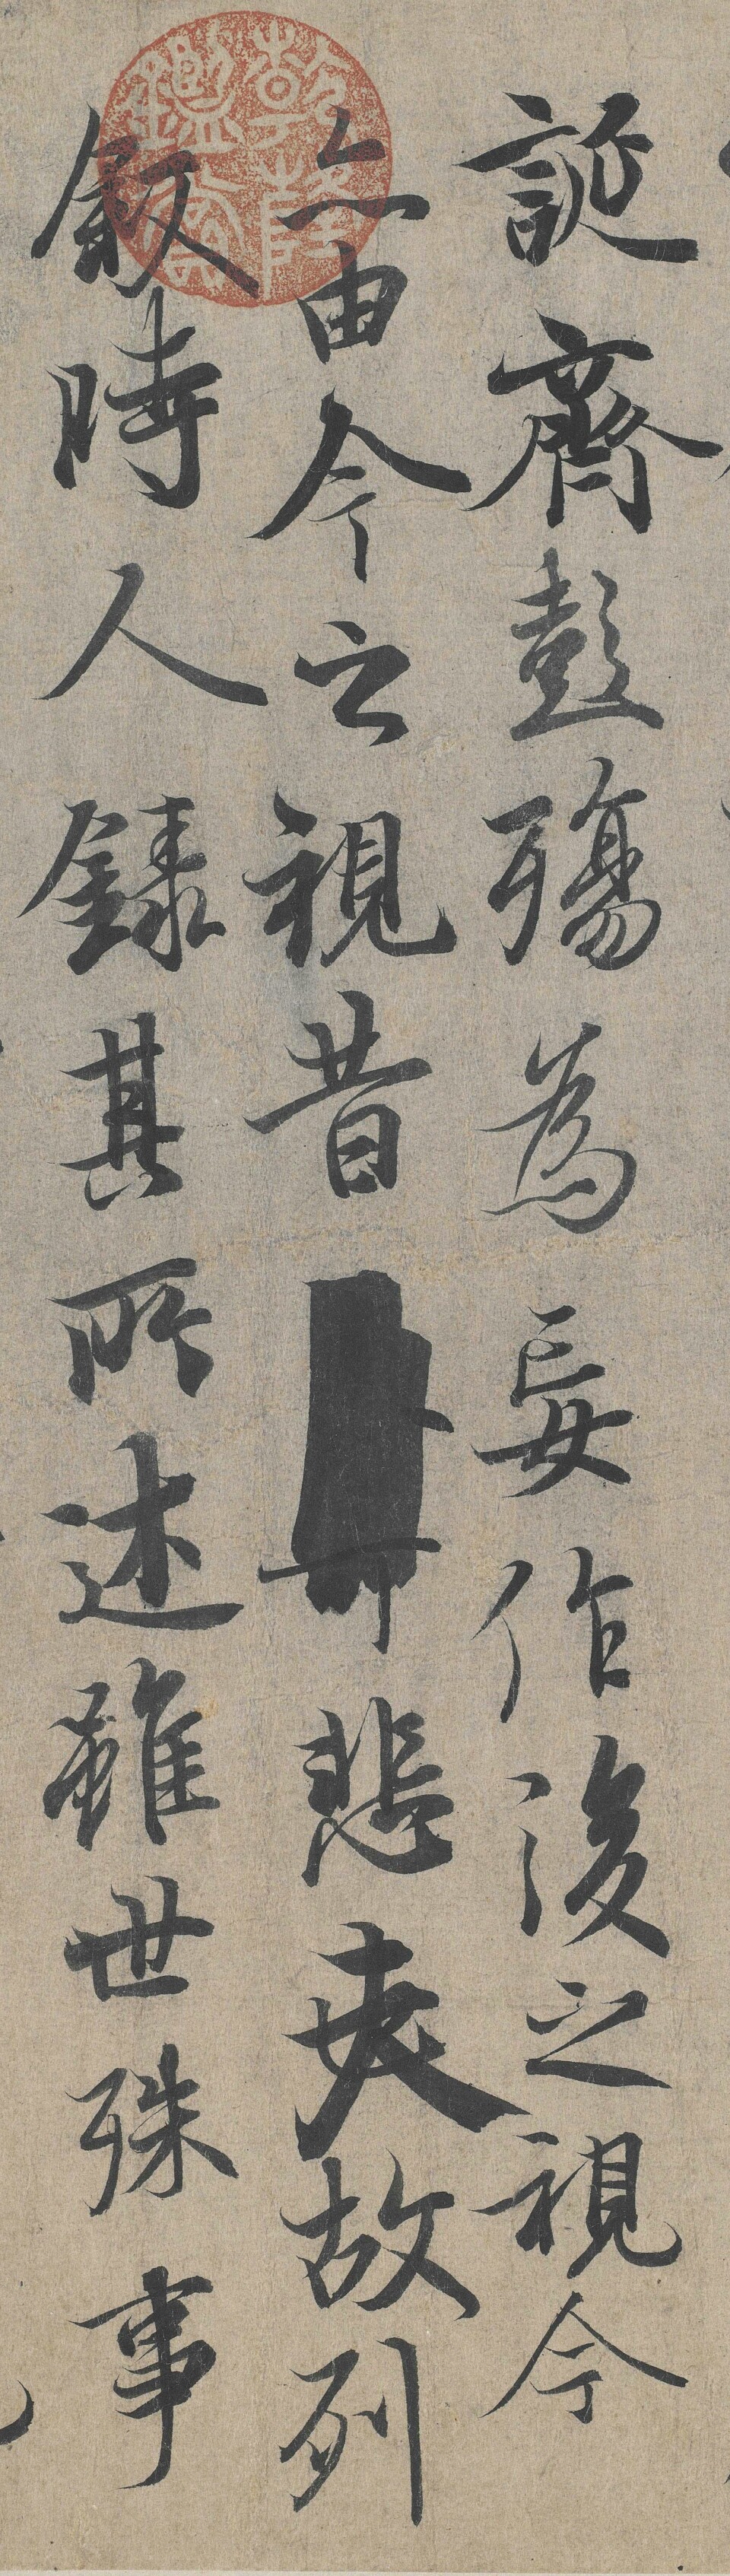 誕齊彭殤為妄作後之視今
亦由今之視昔悲夫故列
叙時人錄其所述雖世殊事
乾隆鑑賞